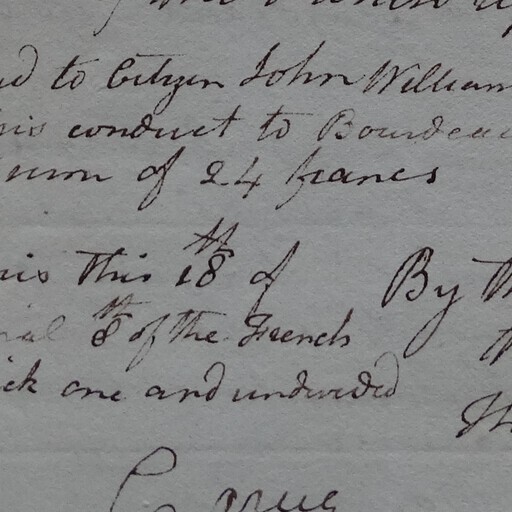 to Citizen John William
his conduct to Bourdeau
sum of 24 francs
this 18th of
By th
8th of the French
one and undivided